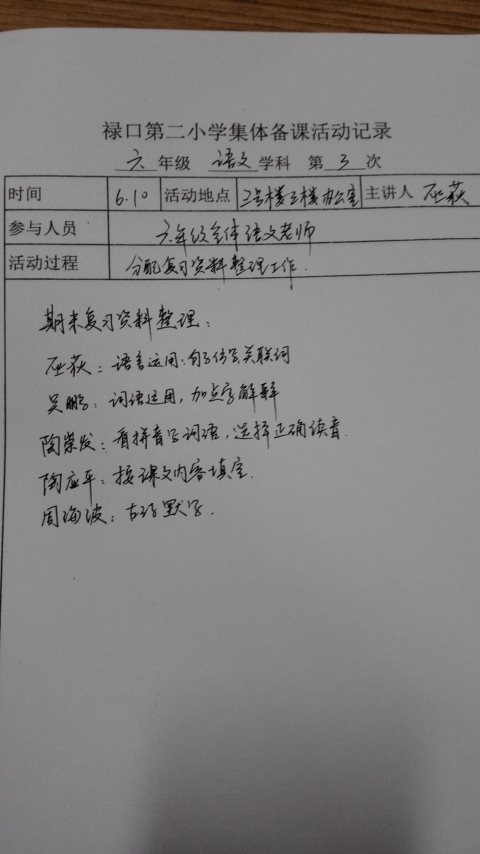 禄口第二小学集体备课活动记录
六 年级 语文 学科 第 3 次
时间 6.10 活动地点 2号楼三楼办公室 主讲人 荻
参与人员 六年级全体语文老师
活动过程 分配复习资料整理工作.
期末复习资料整理:
荻: 语言运用: 句子仿写,关联词
吴鹏: 词语运用, 加点字解释
陶崇发: 看拼音写词语, 选择正确读音.
陶应平: 按课文内容填空.
周海波: 古诗默写.